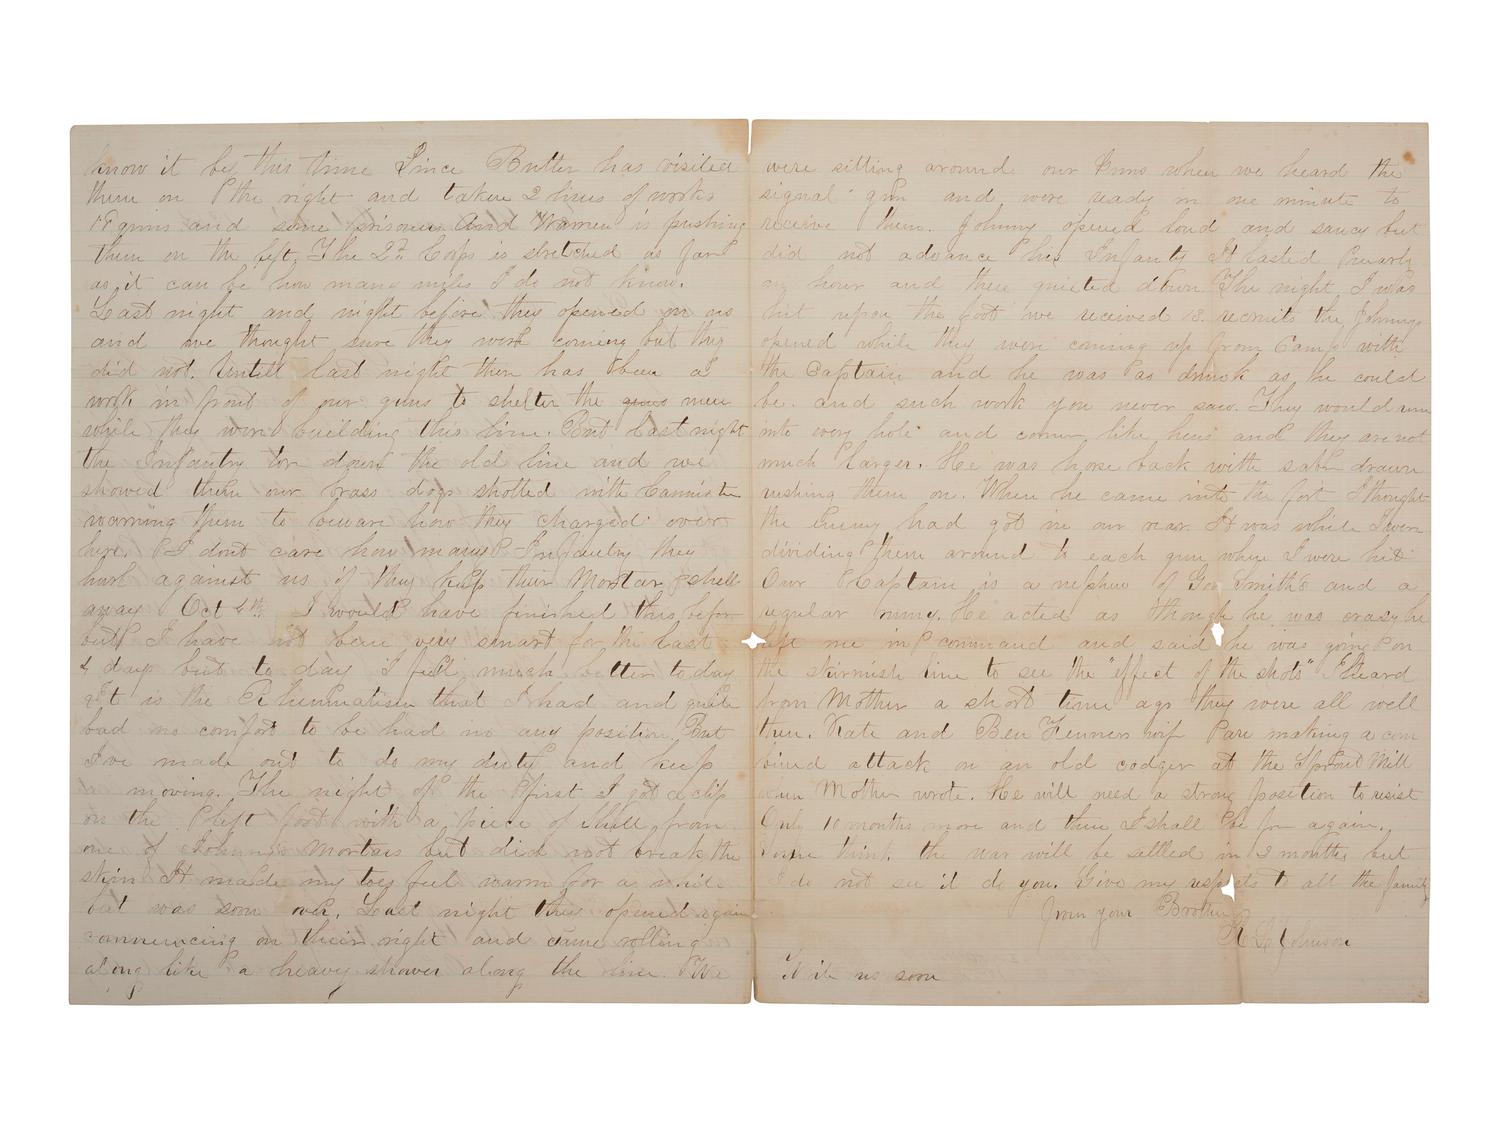 know it by this time Since Butler has visited
them on the right and taken 2 lines of works
guns and some prisoners And Warren is pushing
them on the left. The 2d Corps is stretched as far
as it can be how many miles I do not know.
Last night and night before they opened on us
and we thought sure they were coming but they
did not. Untill last night then has been a
work in front of our guns to shelter the guns men
while they were building this line. But last night
the Infantry tor down the old line and we
showed them our brass dogs shotted with Cannister
warning them to beware how they charged over
here. I dont care how many Infantry they
hurl against us if they keep their Mortar shell
away Oct 4th I would have finished this before
but I have not been very smart for the last
4 days but to day I feel much better to day
It is the Rheumatism that I had and quite
bad no comfort to be had no any position But
I've made out to do my duty and keep
moving. The night of the first I got a clip
on the left foot with a piece of Shell from
one of Johnnys Mortars but did not break the
skin It made my toes feel warm for a while
but was soon over. Last night they opened again
commencing on their right and came rolling
along like a heavy shower along the line. We
were sitting around our Guns when we heard the
signal gun and were ready in one minute to
receive them. Johnny opened loud and saucy but
did not advance his Infanty It lasted nearly
an hour and then quieted down The night I was
hit upon the foot we received 18 recruits the Johnnys
opened while they were coming up from Camp with
the Captain and he was as drunk as he could
be. and such work you never saw. They would run
into every hole and corner like hens and they are not
much larger. He was horse back with sabre drawn
rushing them on. When he came into the fort I thought
the Enemy had got in our rear It was while I were
dividing them around to each gun when I were hit
Our Captain is a nephew of Gov Smith's and a
regular He acted as though he was crasy he
left me in command and said he was going on
the skirmish line to see the "effect of the shots" I heard
from Mother a short time ago they were all well
then. Kate and Ben Fenners wife are making a com
bined attack on an old codger at the Sprout Mill
when Mother wrote. He will need a strong position to resist
Only 10 months more and then I shall be free again.
Some think the war will be settled in 2 months but
I do not see it do you. Give my respects to all the family
from your Brother
R L Johnson
Write us soon